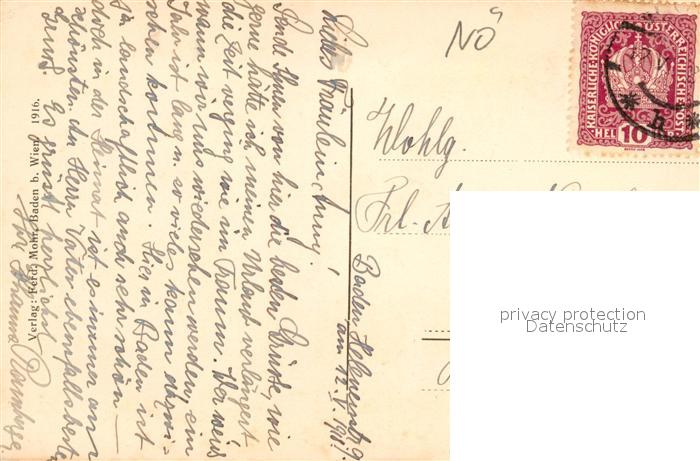 NÖ
KAISERLICHE KÖNIGLICHE ÖSTERREICHISCHE POST
HEL 10
Wohlg.
Frl.
privacy protection
Datenschutz
Baden, Helenenstr. 9
am 12. 1917.
Liebes Fräulein Anny!
Sende Ihnen von hier die besten Grüße, wie
gerne hätte ich meinen Urlaub verlängert
die Zeit verging wie im Traum. Wer weiß
wann wir uns wiedersehen werden, ein
Jahr ist lang u. so vieles kann dazwi-
schen kommen. Hier in Baden ist
es landschaftlich auch sehr schön —
doch in der Heimat ist es immer am
schönsten. An Herrn Vater ebenfalls beste
Es grüßt herzlichst
Ihre
Verlag: Ferd. Mohr, Baden b. Wien. 1916.